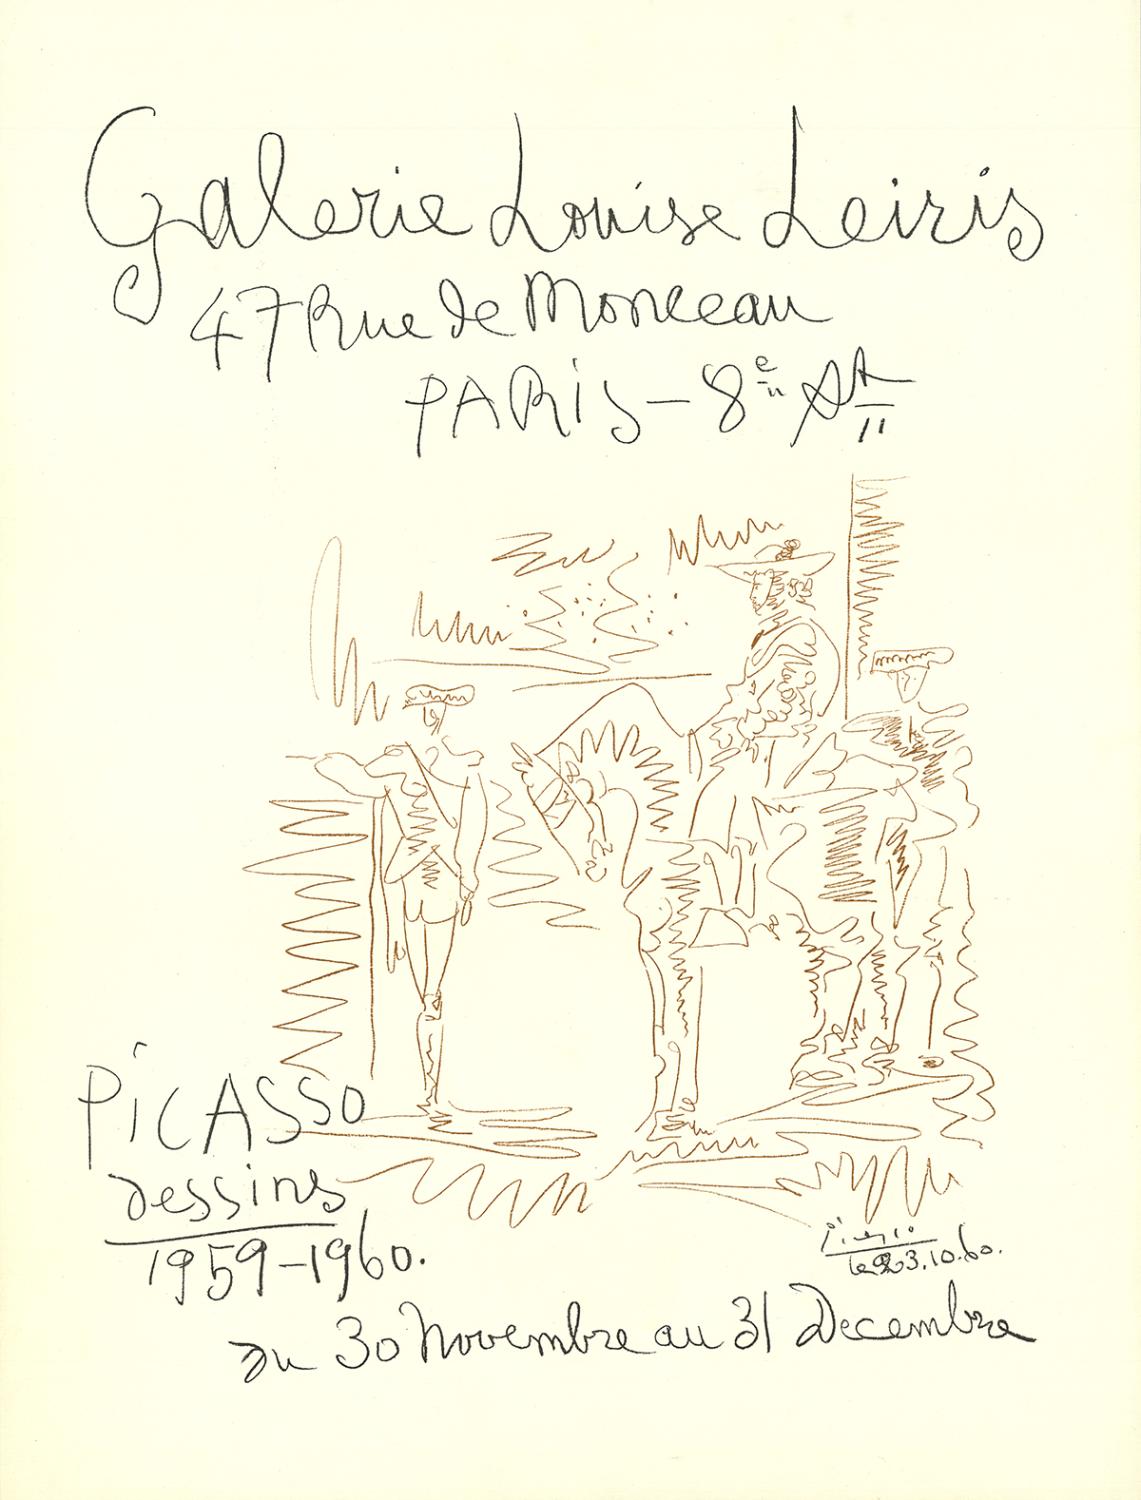 Galerie Louise Leiris
47 Rue de Monceau
PARIS - 8e Art
PiCASSO
dessins
1959-1960.
Picasso
le 23.10.60.
du 30 Novembre au 31 Decembre